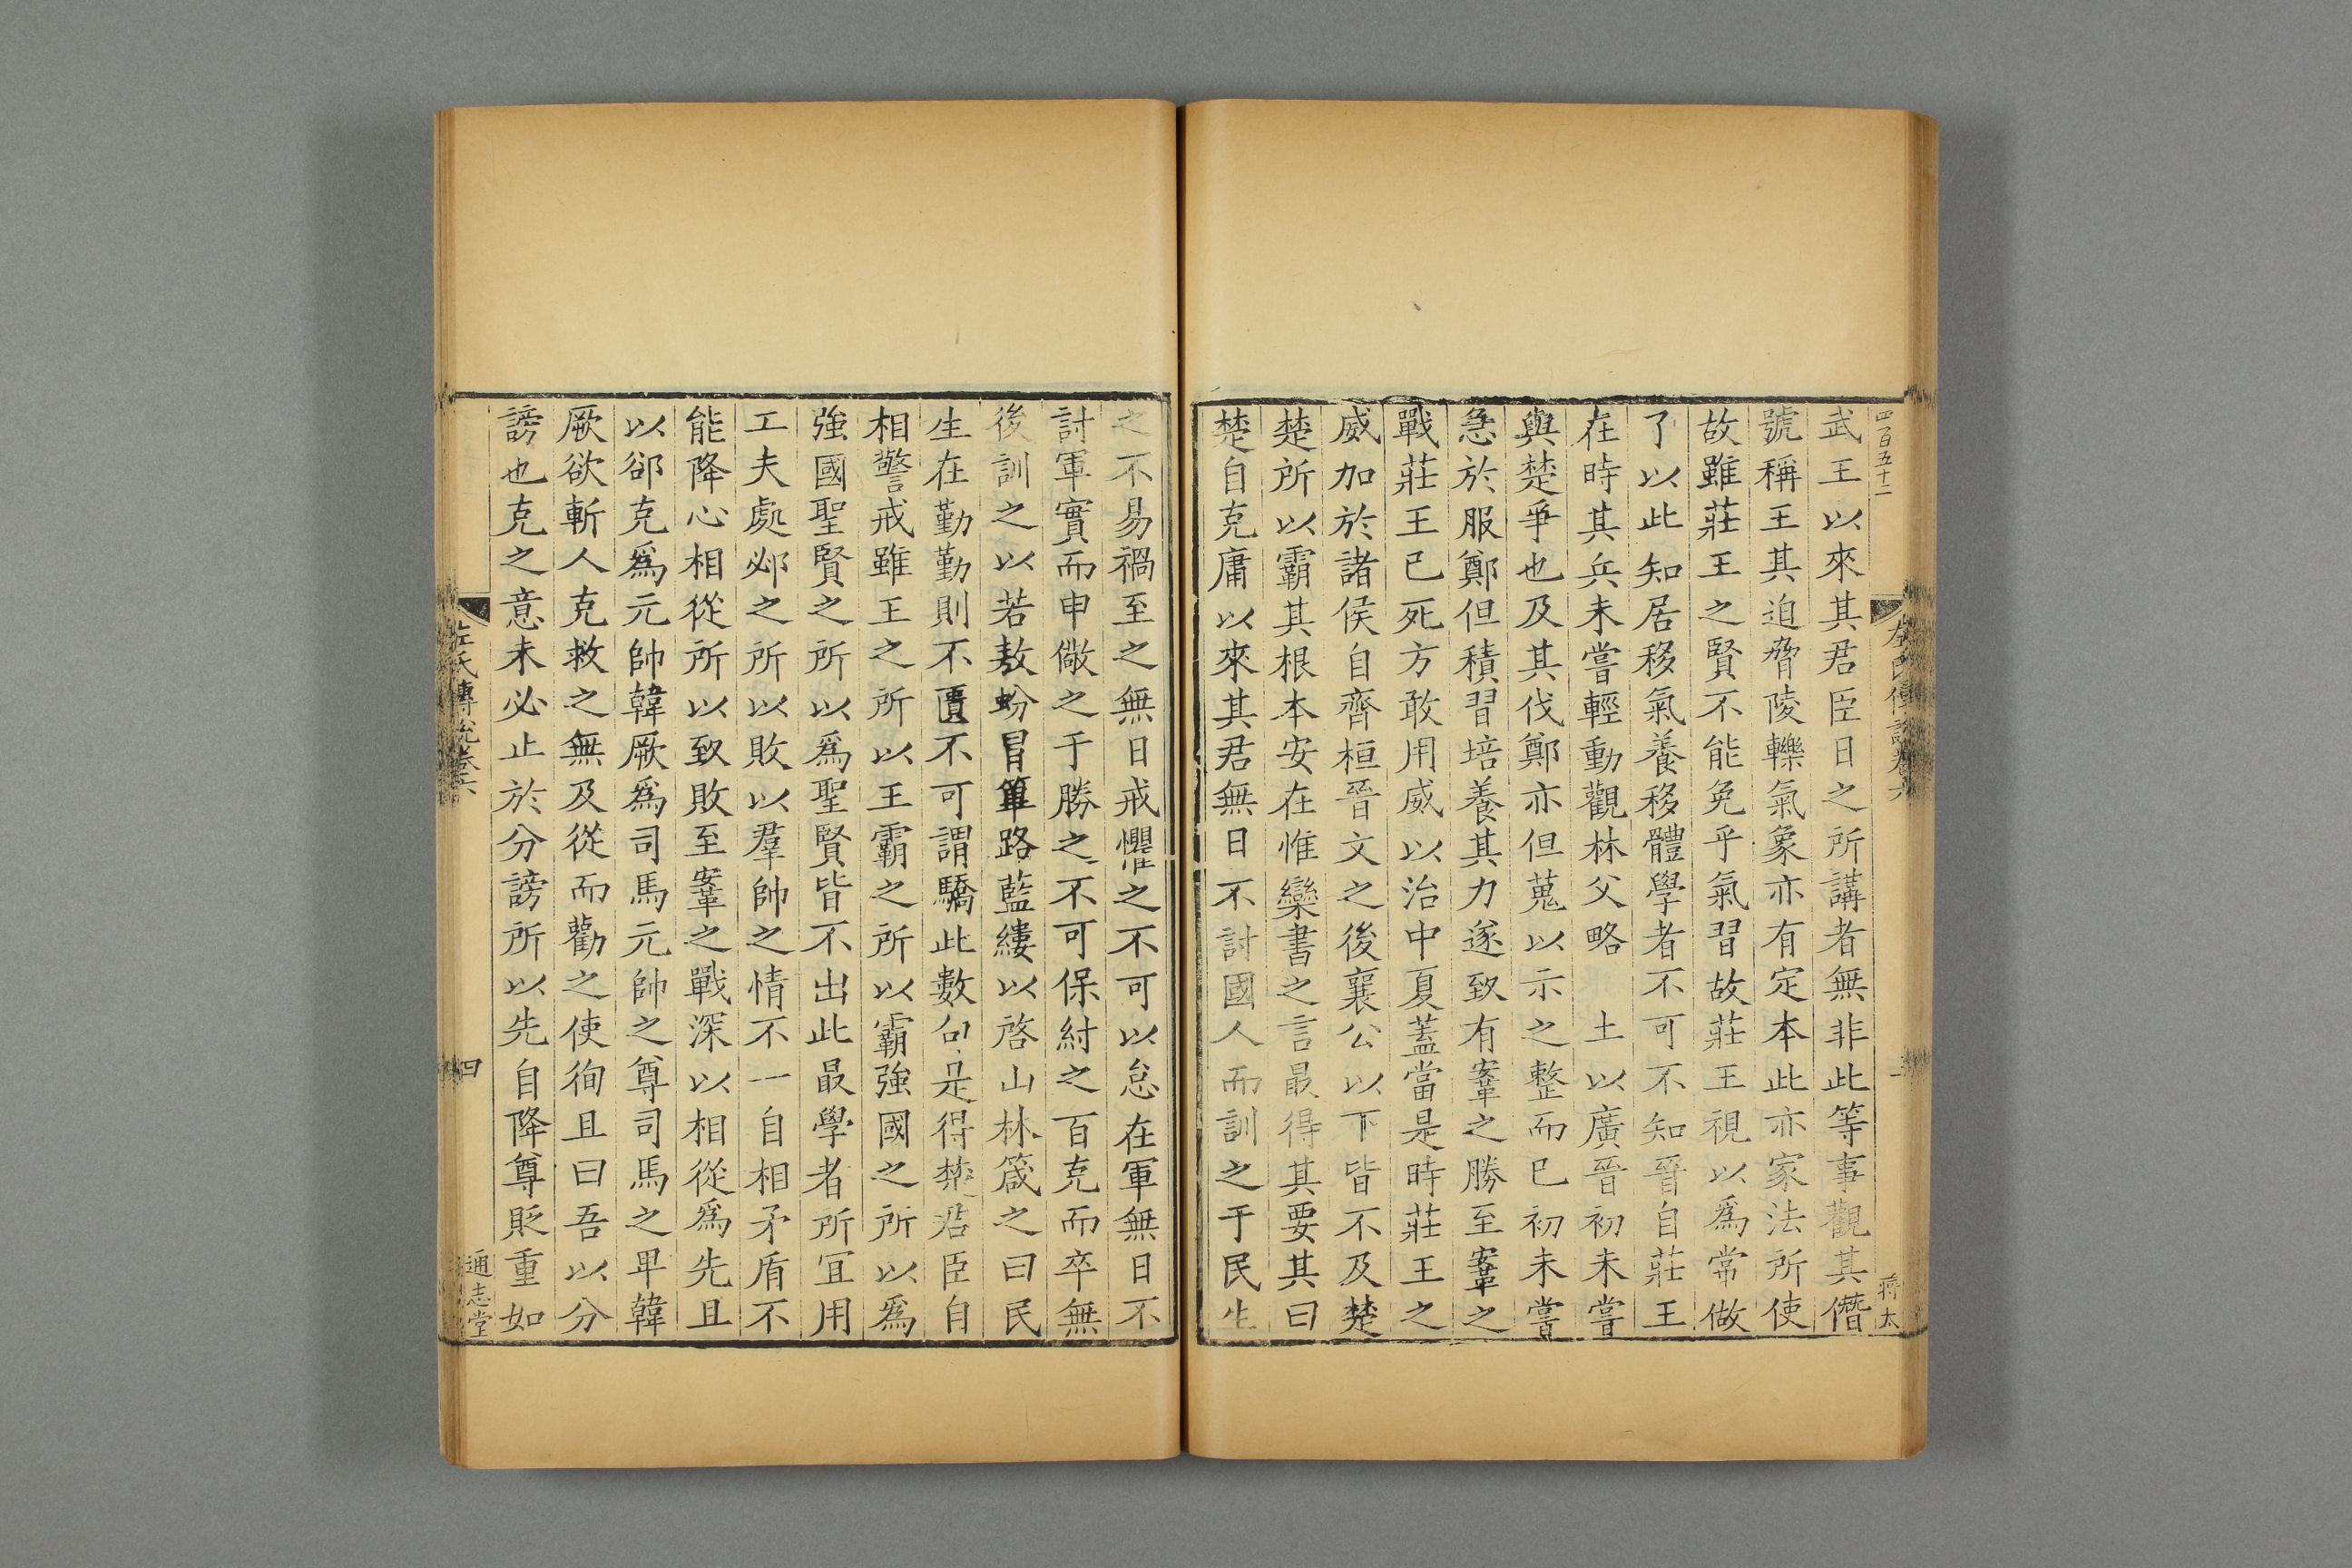 四百五十二
武王以來其君臣日之所講者無非此等事觀其僭
號稱王其迫脅陵轢氣象亦有定本此亦家法所使
故雖莊王之賢不能免乎氣習故莊王視以爲常做
了以此知居移氣養移體學者不可不知晉自莊王
在時其兵未嘗輕動觀林父略　土以廣晉初未嘗
與楚爭也及其伐鄭亦但蒐以示之整而已初未嘗
急於服鄭但積習培養其力遂致有鞌之勝至鞌之
戰莊王已死方敢用威以治中夏蓋當是時莊王之
威加於諸侯自齊桓晉文之後襄公以下皆不及楚
楚所以霸其根本安在惟欒書之言最得其要其曰
楚自克庸以來其君無日不討國人而訓之于民生
之不易禍至之無日戒懼之不可以怠在軍無日不
討軍實而申儆之于勝之不可保紂之百克而卒無
後訓之以若敖蚡冒篳路藍縷以啓山林箴之曰民
生在勤勤則不匱不可謂驕此數句是得楚君臣自
相警戒雖王之所以王霸之所以霸強國之所以爲
強國聖賢之所以爲聖賢皆不出此最學者所宜用
工夫處邲之所以敗以羣帥之情不一自相矛盾不
能降心相從所以致敗至鞌之戰深以相從爲先且
以郤克爲元帥韓厥爲司馬元帥之尊司馬之卑韓
厥欲斬人克救之無及從而勸之使徇且曰吾以分
謗也克之意未必止於分謗所以先自降尊貶重如
左氏傳說卷六
四
通志堂
蔣太